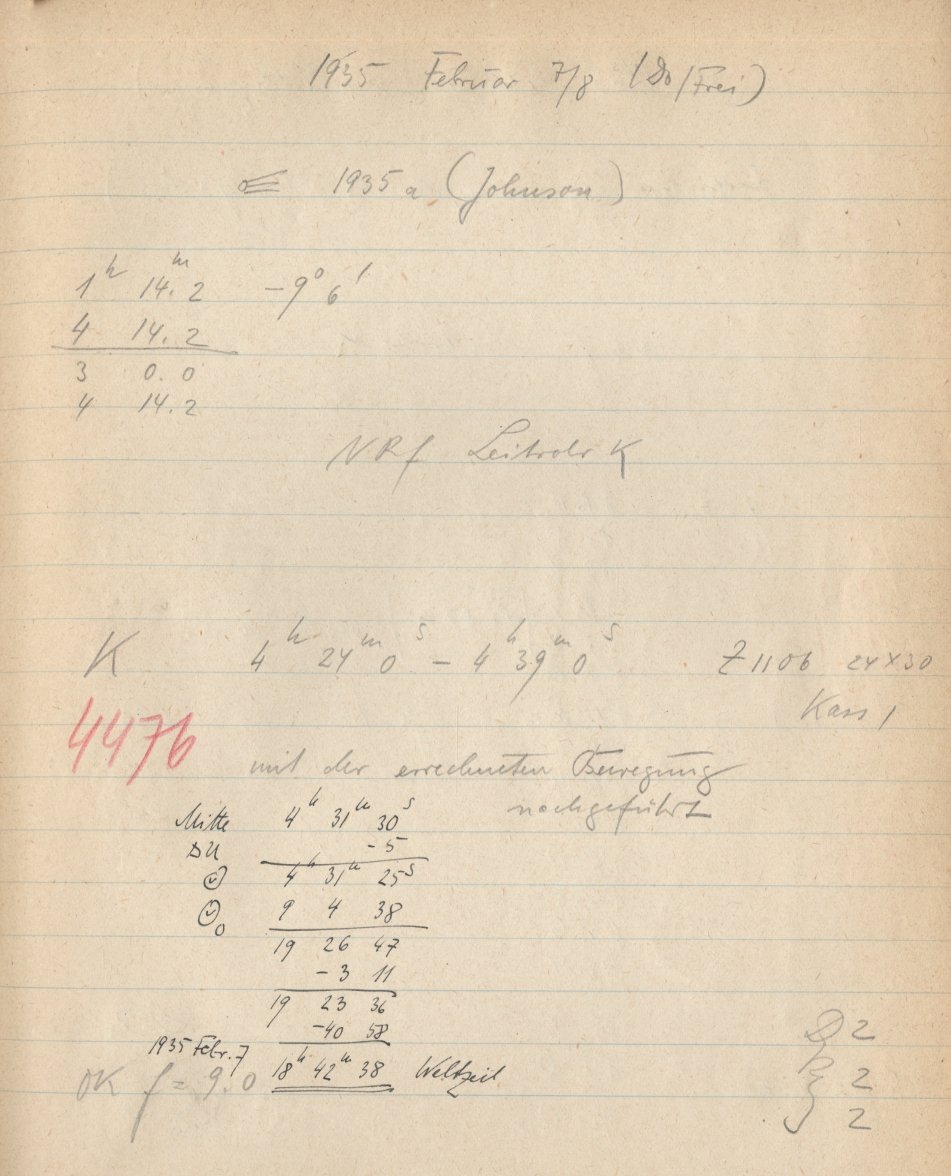 1935 Februar 7/8 (Do/Frei)
1935 a (Johnson)
1ʰ 14.2ᵐ −9° 6′
4 14.2
3 0.0
4 14.2
NRf Leitrohr K
K 4ʰ 24ᵐ 0ˢ − 4ʰ 39ᵐ 0ˢ Z 1106 24×30
Kass 1
4476
mit der errechneten Bewegung
nachgeführt
Mitte 4ʰ 31ᵐ 30ˢ
DU −5
4ʰ 31ᵐ 25ˢ
9 4 38
19 26 47
−3 11
19 23 36
−40 58
1935 Febr. 7 18ʰ 42ᵐ 38 Weltzeit
OK f = 9.0
D 2
R 2
J 2